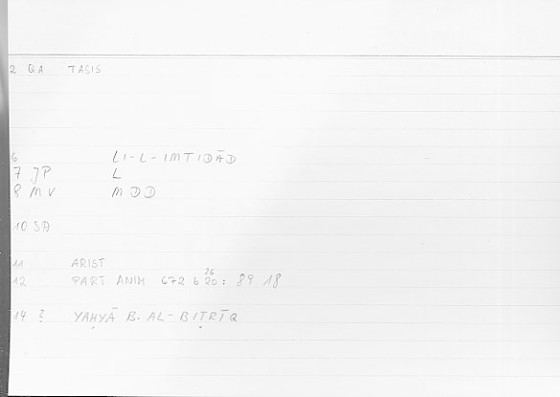 2 QA TASIS
6 LI-L-IMTIDĀD
7 JP L
8 MV MDD
10 SA
11 ARIST
12 PART ANIM 672 b 20: 89 18
26
14 ? YAḤYĀ B. AL-BIṬRĪQ